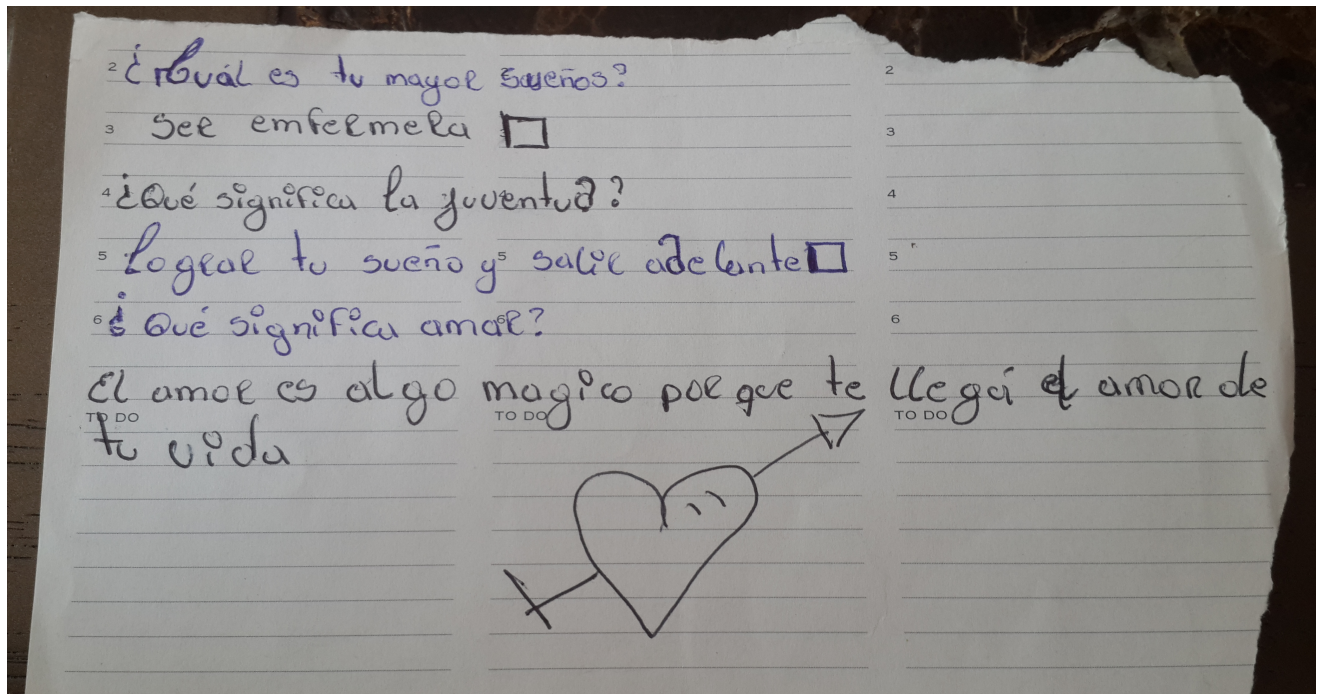 2 ¿Cuál es tu mayor sueños? 2
3 Ser emfermera 3
4 ¿Qué significa la juventud? 4
5 Lograr tu sueño y 5 salir adelante 5
6 ¿Qué significa amar? 6 6
El amor es algo magico por que te llega el amor de
TO DO TO DO TO DO
tu vida